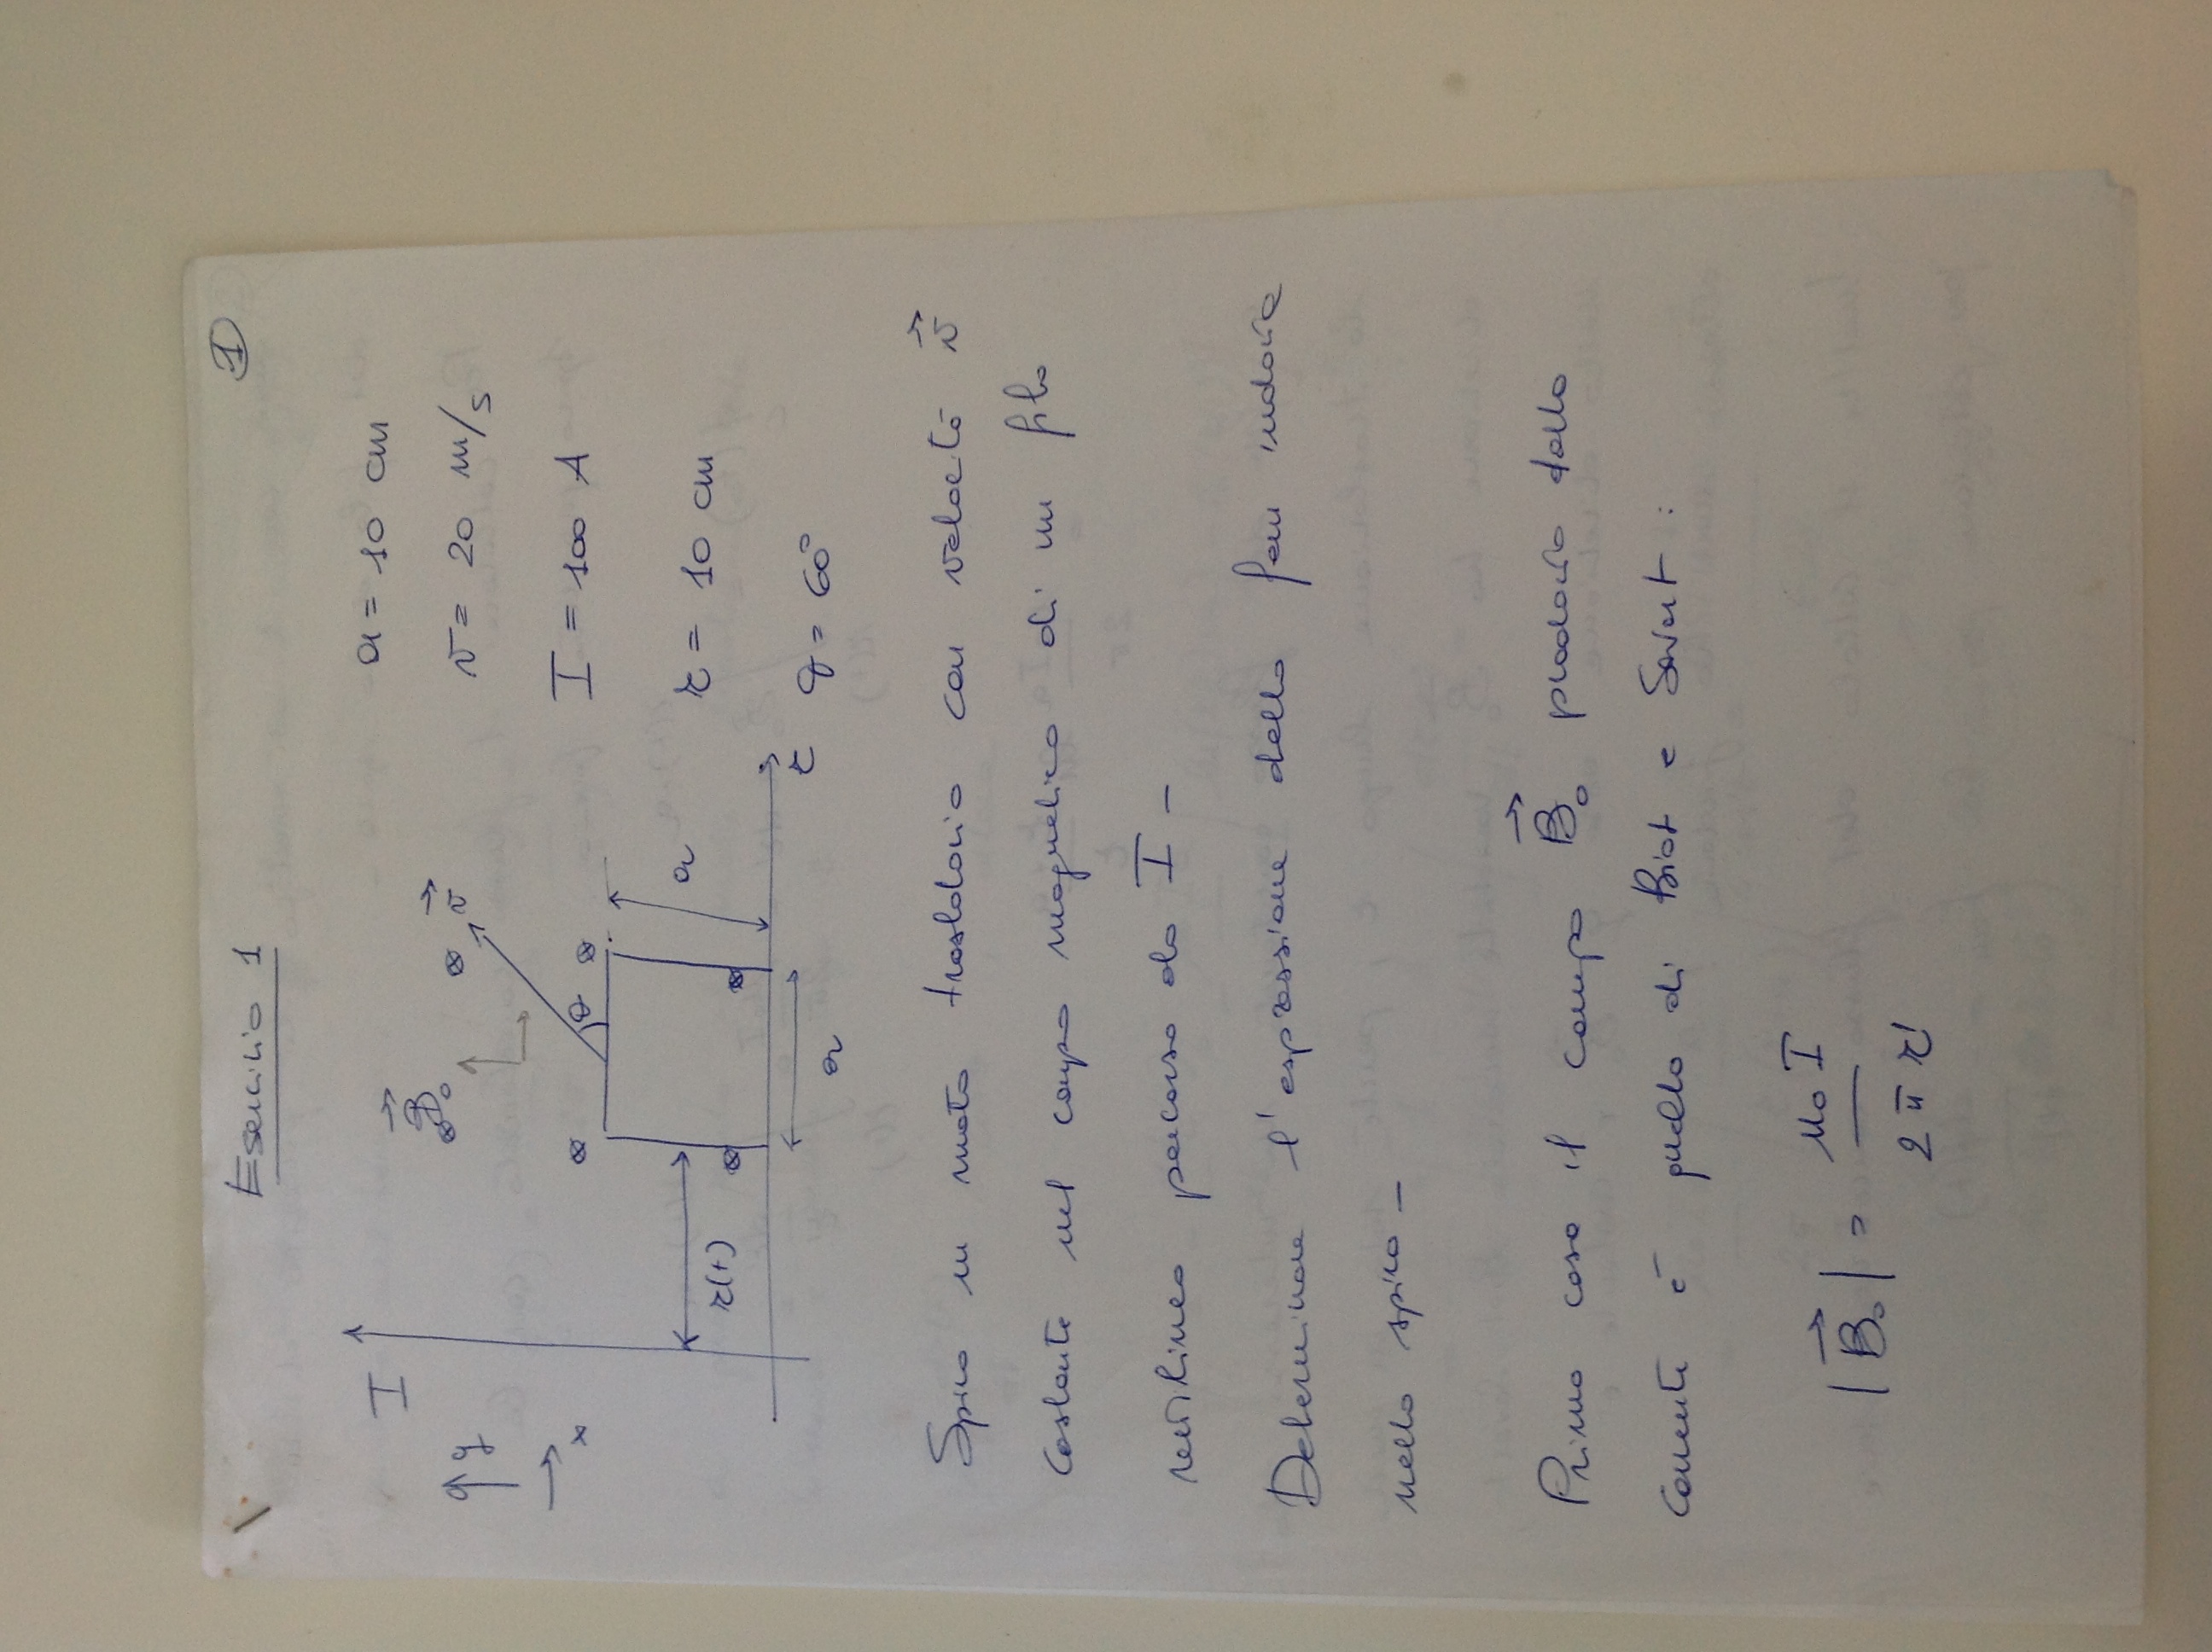 Esercizio 1
1
I
B₀
v
y
x
θ
r(t)
a
a
r
a = 10 cm
v = 20 m/s
I = 100 A
r = 10 cm
θ = 60°
Spira in moto traslatorio con velocità v
costante nel campo magnetico di un filo
rettilineo percorso da I –
Determinare l'espressione della fem indotta
nella spira –
Primo caso il campo B₀ prodotto dalla
corrente è quello di Biot e Savart :
|B₀| = μ₀ I / 2 π r'